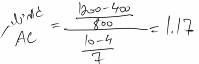 AC = \frac{\frac{1200-400}{800}}{\frac{10-4}{7}} = 1.17